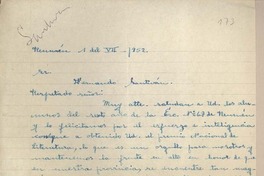 173
Neuquén 1 del VII - 1952.
Sr
Fernando
Respetado señor:
Muy atte. saludan a Ud. los alum
nos del sexto año de la Esc. Nº 
y lo felicitamos por el esfuerzo e inteligencia
 a obtenido Ud. el premio Nacional de
Literatura, lo que es un orgullo para nosotros y
mantenemos la frente en alto en honor de que
en nuestra provincia se encuentre tan